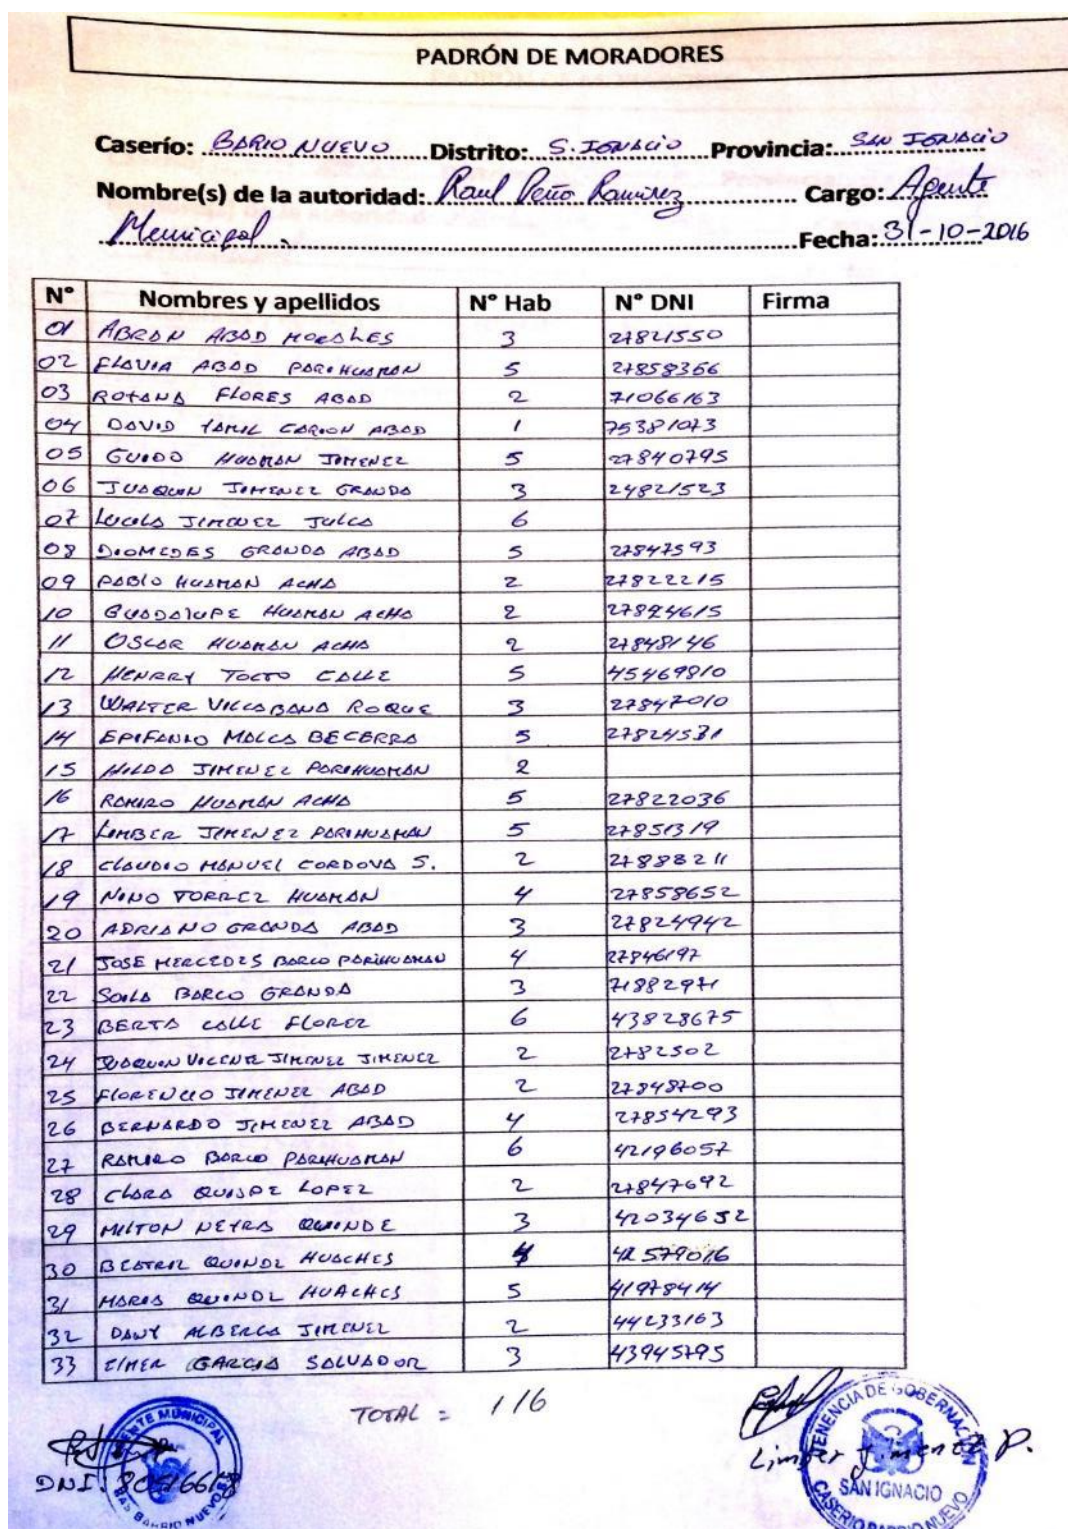 PADRÓN DE MORADORES
Caserío: BARIO NUEVO Distrito: S. IGNACIO Provincia: SAN IGNACIO
Nombre(s) de la autoridad: Raul Peño Ramirez Cargo: Agente
Municipal. Fecha: 31-10-2016
N° Nombres y apellidos N° Hab N° DNI Firma
01 ABRAN ABAD MORALES 3 27821550
02 FLAVIA ABAD PARIHUAMAN 5 27858366
03 ROXANA FLORES ABAD 2 71066163
04 DAVID YAMIL CARION ABAD 1 75381073
05 GUIDO HUAMAN JIMENEZ 5 27840795
06 JUAQUIN JIMENEZ GRANDA 3 24821523
07 LUCILA JIMENEZ JULCA 6
08 DIOMEDES GRANDA ABAD 5 27847593
09 PABLO HUAMAN ACHA 2 27822215
10 GUADALUPE HUAMAN ACHA 2 27824615
11 OSCAR HUAMAN ACHA 2 27848146
12 HENRRY TOCTO CALLE 5 45469810
13 WALTER VILLABANA ROQUE 3 27847010
14 EPIFANIO MALCA BECERRA 5 27824531
15 HILDA JIMENEZ PARIHUAMAN 2
16 RAMIRO HUAMAN ACHA 5 27822036
17 LIMBER JIMENEZ PARIHUAMAN 5 27851319
18 CLAUDIO MANUEL CORDOVA S. 2 27888211
19 NINO TORREZ HUAMAN 4 27858652
20 ADRIANO GRANDA ABAD 3 27824942
21 JOSE MERCEDES BARCO PARIHUAMAN 4 27846197
22 SOILA BARCO GRANDA 3 71882971
23 BERTA CALLE FLOREZ 6 43828675
24 JUAQUIN VICENTE JIMENEZ JIMENEZ 2 2782502
25 FLORENCIO JIMENEZ ABAD 2 27848700
26 BERNARDO JIMENEZ ABAD 4 27854293
27 RAMIRO BARCO PARIHUAMAN 6 42196057
28 CLARA QUISPE LOPEZ 2 27847692
29 MILTON NEYRA QUINDE 3 42034652
30 BEATRIZ QUINDE HUACHES 4 42579016
31 MARIA QUINDE HUACHES 5 41978414
32 DANY ALBERCA JIMENEZ 2 44233163
33 ELMER GARCIA SALVADOR 3 43945795
TOTAL = 116
AGENTE MUNICIPAL
DNI: 80516618
BARRIO NUEVO
TENENCIA DE GOBERNACIÓN
Limber Jimenez P.
SAN IGNACIO
CASERIO BARRIO NUEVO